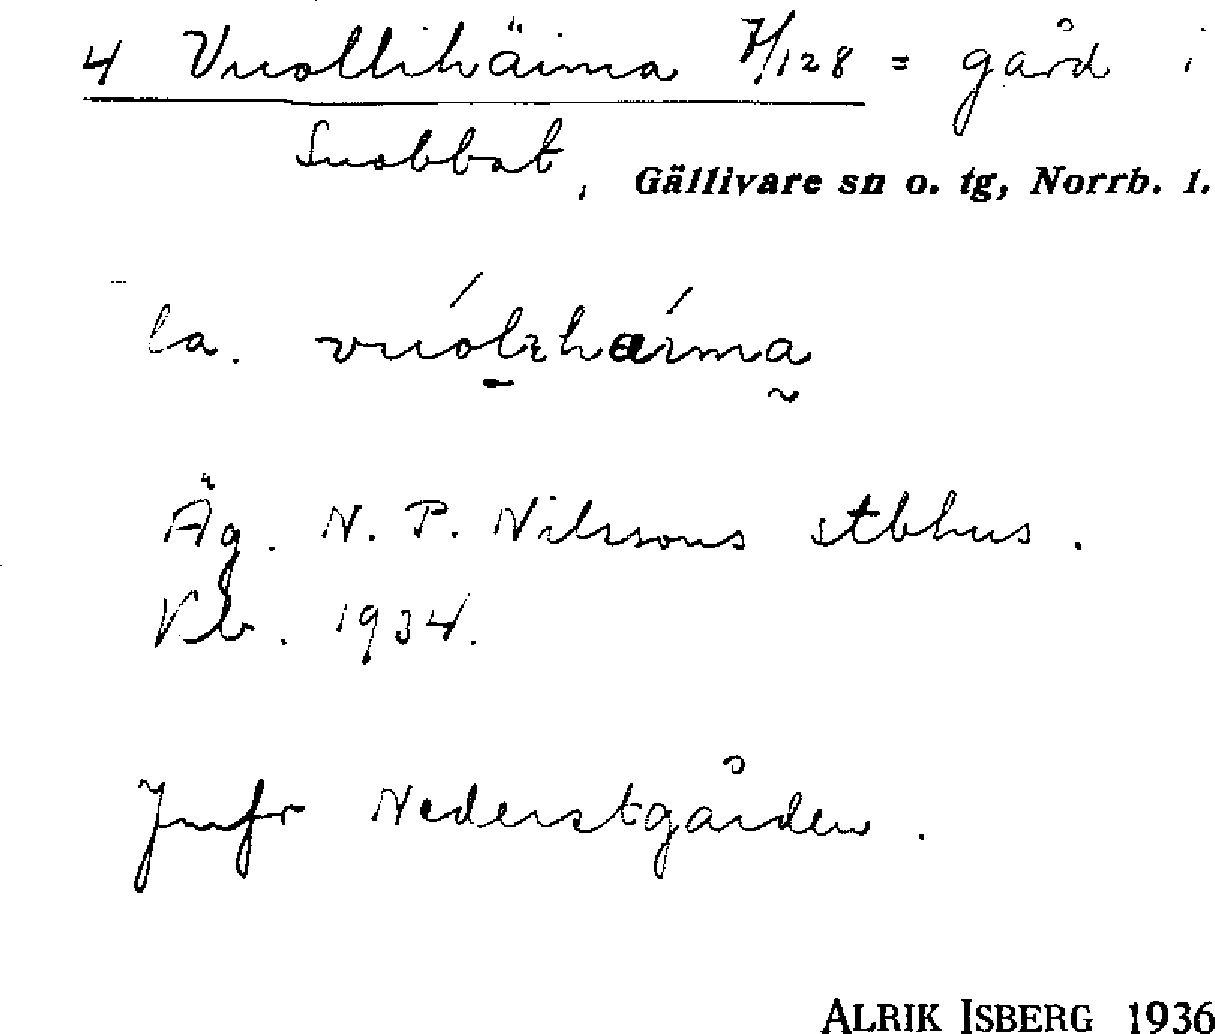 4 Vuollihäima 7/128 = gård i
Suobbat, Gällivare sn o. tg, Norrb. l.
la. vuólıhaíma
Äg. N. P. Nilssons stbhus.
Vb. 1934.
Jmfr Nederstgården.
ALRIK ISBERG 1936